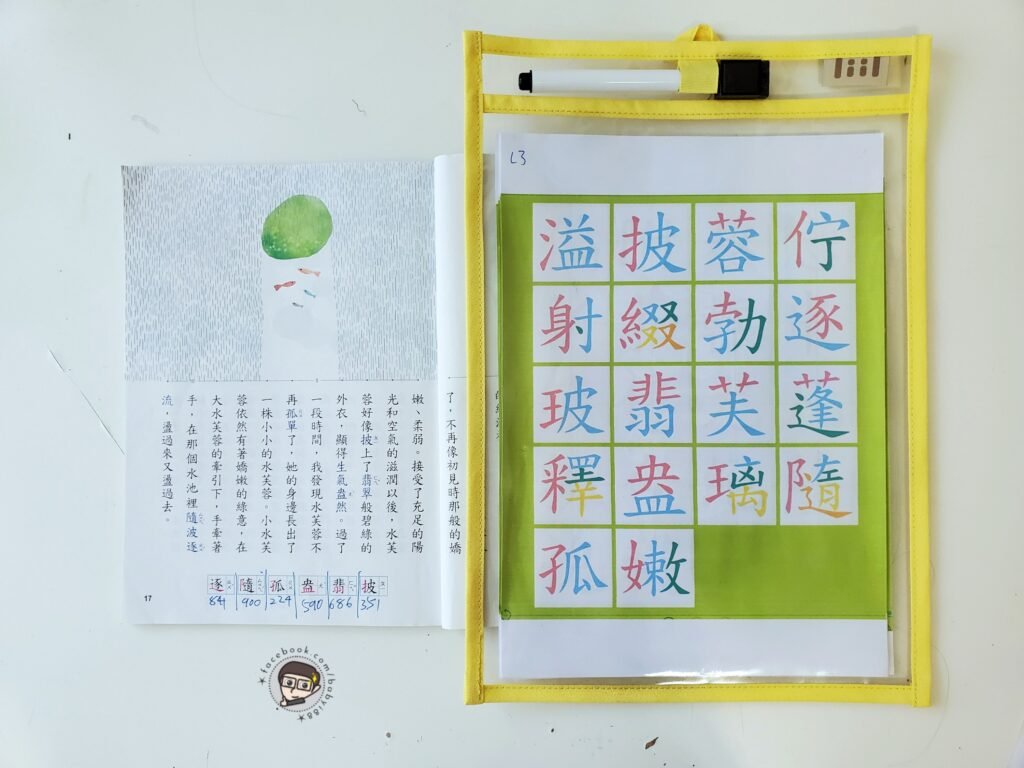 了，不再像初見時那般的嬌
嫩、柔弱。接受了充足的陽
光和空氣的滋潤以後，水芙
蓉好像披上了翡翠般碧綠的
外衣，顯得生氣盎然。過了
一段時間，我發現水芙蓉不
再孤單了，她的身邊長出了
一株小小的水芙蓉。小水芙
蓉依然有著嬌嫩的綠意，在
大水芙蓉的牽引下，手牽著
手，在那個水池裡隨波逐
流，盪過來又盪過去。
逐 隨 孤 盎 翡 披
841 900 224 590 686 351
17
L3
溢 披 蓉 佇
射 綴 勃 逐
玻 翡 芙 蓬
釋 盎 璃 隨
孤 嫩
facebook.com/babyi88